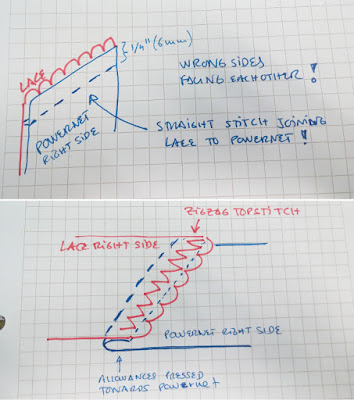 LACE
1/4" (6mm)
WRONG SIDES
FACING EACHOTHER!
POWERNET
RIGHT SIDE
STRAIGHT STITCH JOINING
LACE TO POWERNET!
ZIGZAG TOPSTITCH
LACE RIGHT SIDE
POWERNET RIGHT SIDE
ALLOWANCES PRESSED
TOWARDS POWERNET